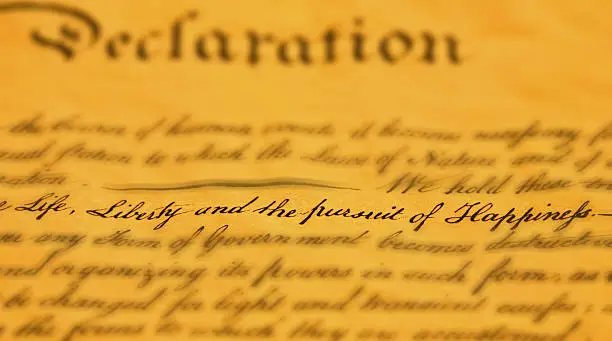 Declaration
the Course of human events, it becomes necessary f
station to which the Laws of Nature and of
ration. We hold these
e Life, Liberty and the pursuit of Happiness.—
any Form of Government becomes destructive
and organizing its powers in such form, as
be changed for light and transient causes;
the forms to which they are accustomed.